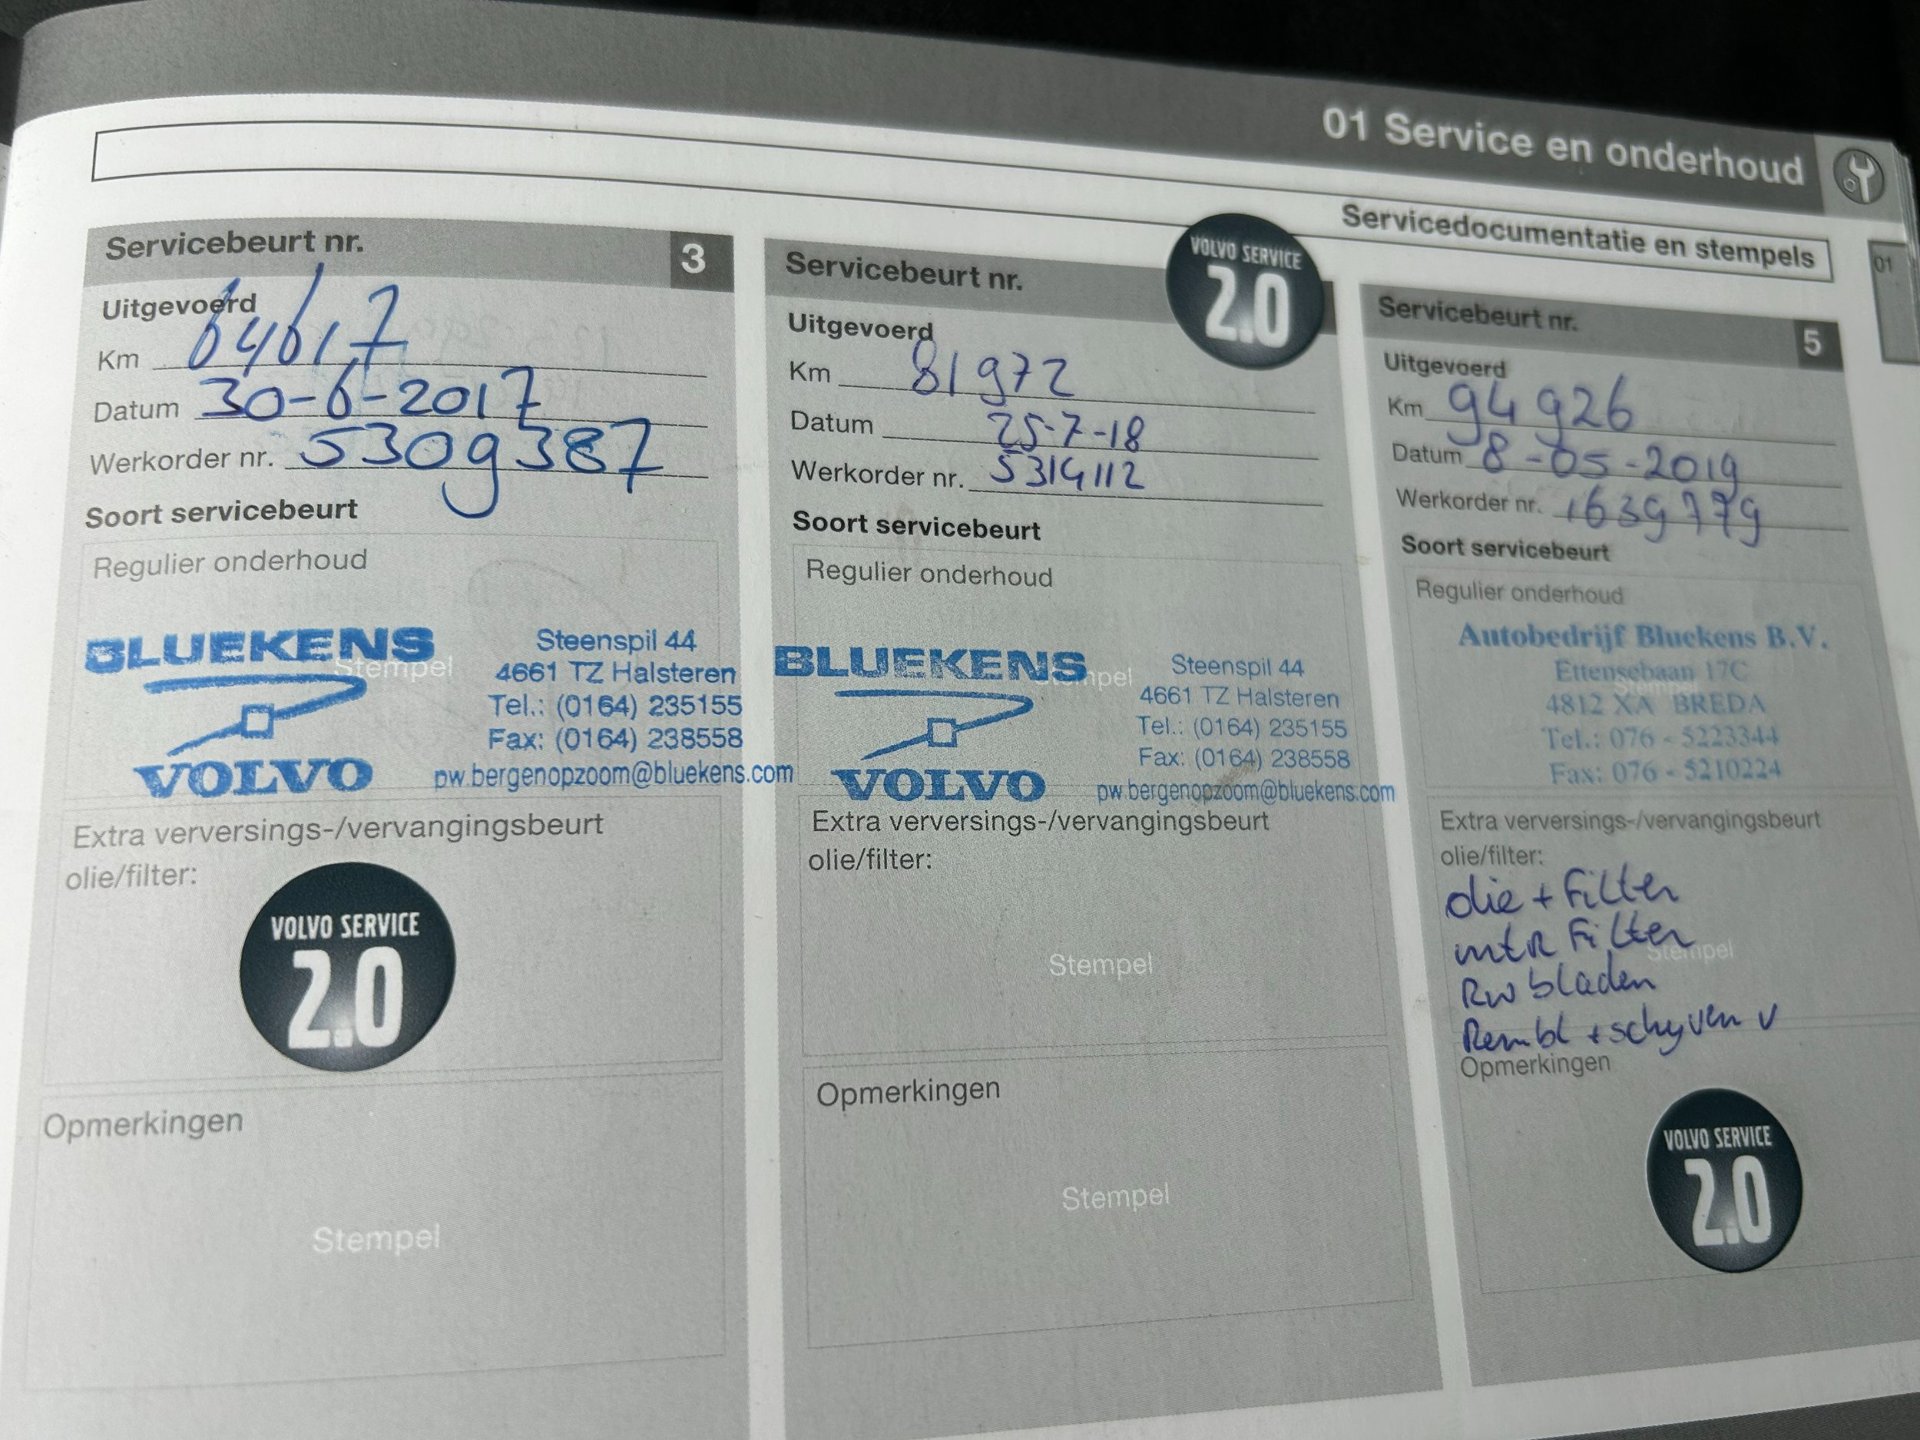 01 Service en onderhoud
Servicedocumentatie en stempels
01
Servicebeurt nr. 3
Uitgevoerd
Km 64617
Datum 30-6-2017
Werkorder nr. 5309387
Soort servicebeurt
Regulier onderhoud
Stempel
BLUEKENS
VOLVO
Steenspil 44
4661 TZ Halsteren
Tel.: (0164) 235155
Fax: (0164) 238558
pw.bergenopzoom@bluekens.com
Extra verversings-/vervangingsbeurt
olie/filter:
VOLVO SERVICE
2.0
Opmerkingen
Stempel
Servicebeurt nr.
VOLVO SERVICE
2.0
Uitgevoerd
Km 81972
Datum 25-7-18
Werkorder nr. 5314112
Soort servicebeurt
Regulier onderhoud
Stempel
BLUEKENS
VOLVO
Steenspil 44
4661 TZ Halsteren
Tel.: (0164) 235155
Fax: (0164) 238558
pw.bergenopzoom@bluekens.com
Extra verversings-/vervangingsbeurt
olie/filter:
Stempel
Opmerkingen
Stempel
Servicebeurt nr. 5
Uitgevoerd
Km 94926
Datum 8-05-2019
Werkorder nr. 1639779
Soort servicebeurt
Regulier onderhoud
Stempel
Autobedrijf Bluekens B.V.
Ettensebaan 17C
4812 XA BREDA
Tel.: 076 - 5223344
Fax: 076 - 5210224
Extra verversings-/vervangingsbeurt
olie/filter:
olie + Filter
mtR Filter
Stempel
RW bladen
Rembl + schyven v
Opmerkingen
VOLVO SERVICE
2.0